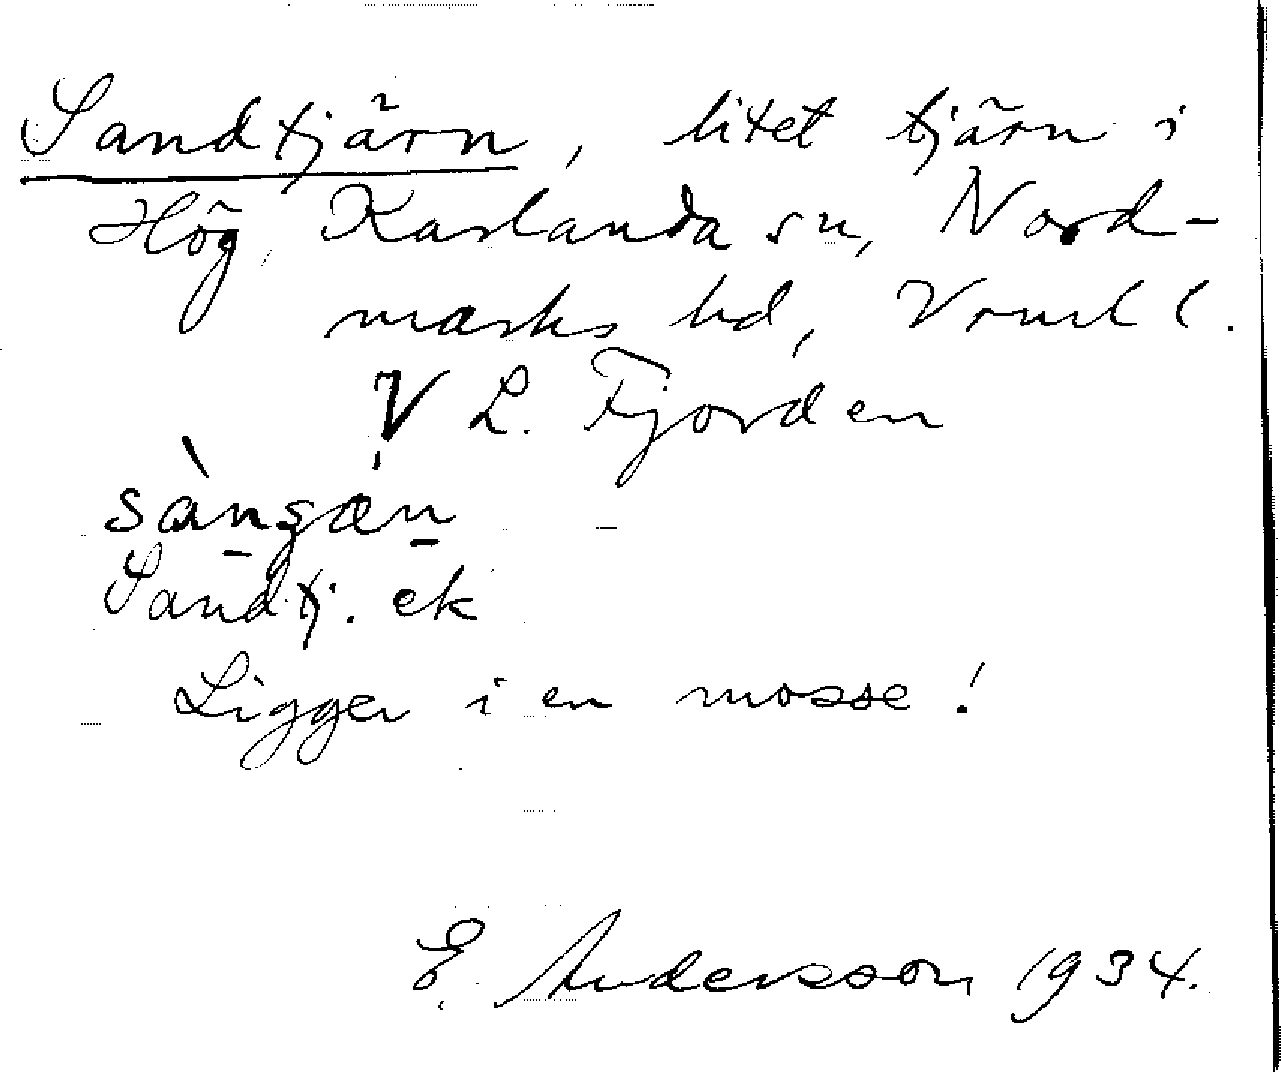 Sandtjärn, litet tjärn i
Hög, Karlanda sn, Nord-
marks hd, Vrml l.
V L. Fjorden
Sandtj. ek
Ligger i en mosse!
E. Andersson 1934.